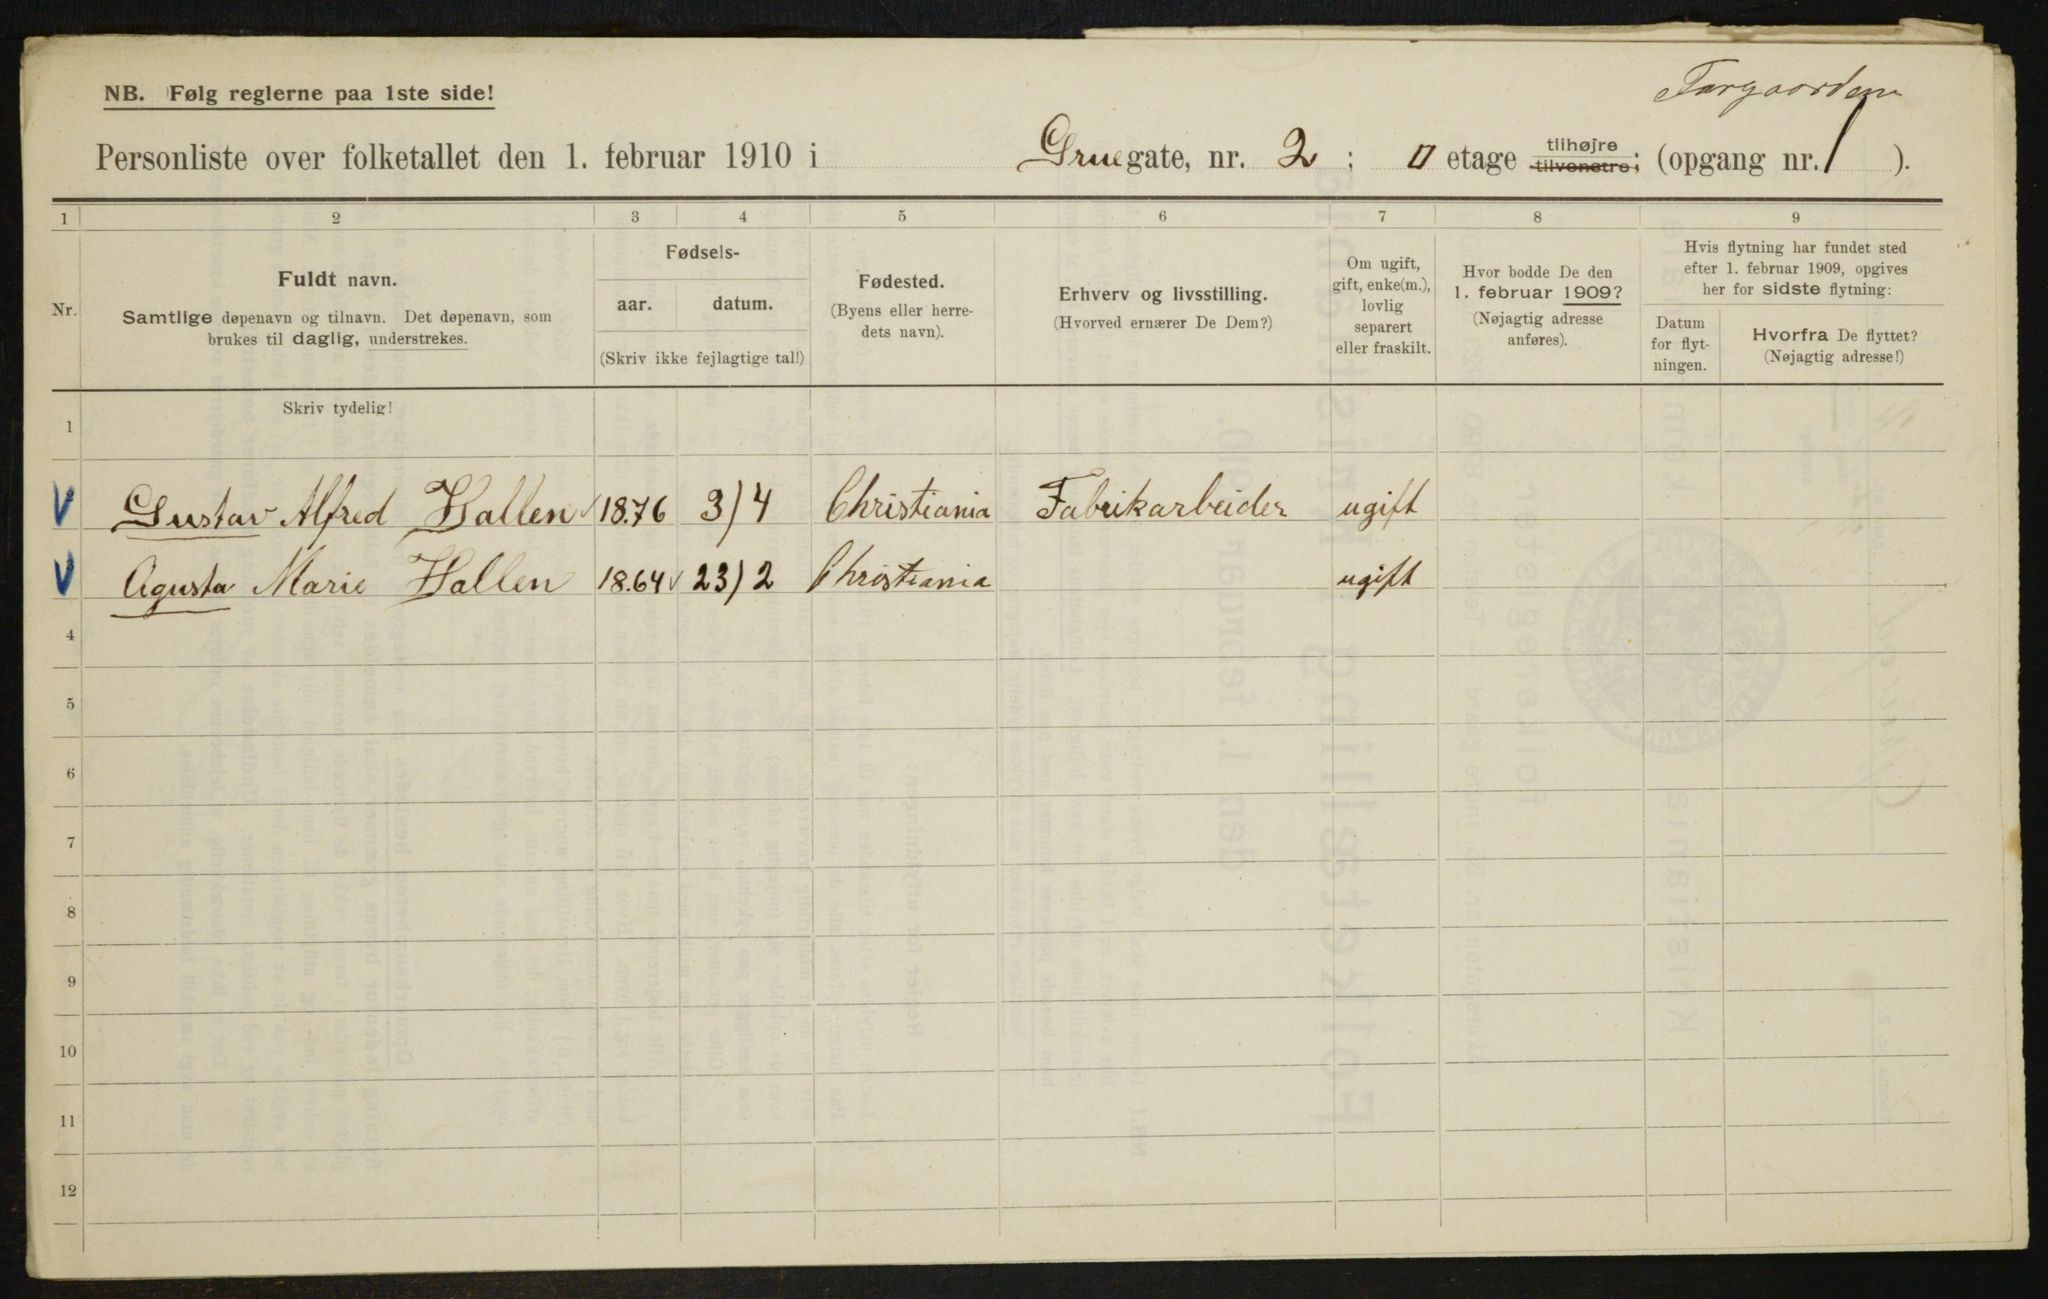 Forgaarden
NB. Følg reglerne paa 1ste side!
Personliste over folketallet den 1. februar 1910 i Gruegate, nr. 2; etage tilhøjre tilvenstre; (opgang nr. 1).
1 2 3 4 5 6 7 8 9
Nr.
Fuldt navn.
Samtlige døpenavn og tilnavn. Det døpenavn, som
brukes til daglig, understrekes.
Fødsels-
aar. datum.
(Skriv ikke fejlagtige tal!)
Fødested.
(Byens eller herre-
dets navn).
Erhverv og livsstilling.
(Hvorved ernærer De Dem?)
Om ugift,
gift, enke(m.),
lovlig
separert
eller fraskilt.
Hvor bodde De den
1. februar 1909?
(Nøjagtig adresse
anføres).
Hvis flytning har fundet sted
efter 1. februar 1909, opgives
her for sidste flytning:
Datum
for flyt-
ningen.
Hvorfra De flyttet?
(Nøjagtig adresse!)
Skriv tydelig!
1
V Gustav Alfred Hallen 1876 3/4 Christiania Fabrikarbeider ugift
V Agusta Marie Hallen 1864 v 23/2 Christiania ugift
4
5
6
7
8
9
10
11
12